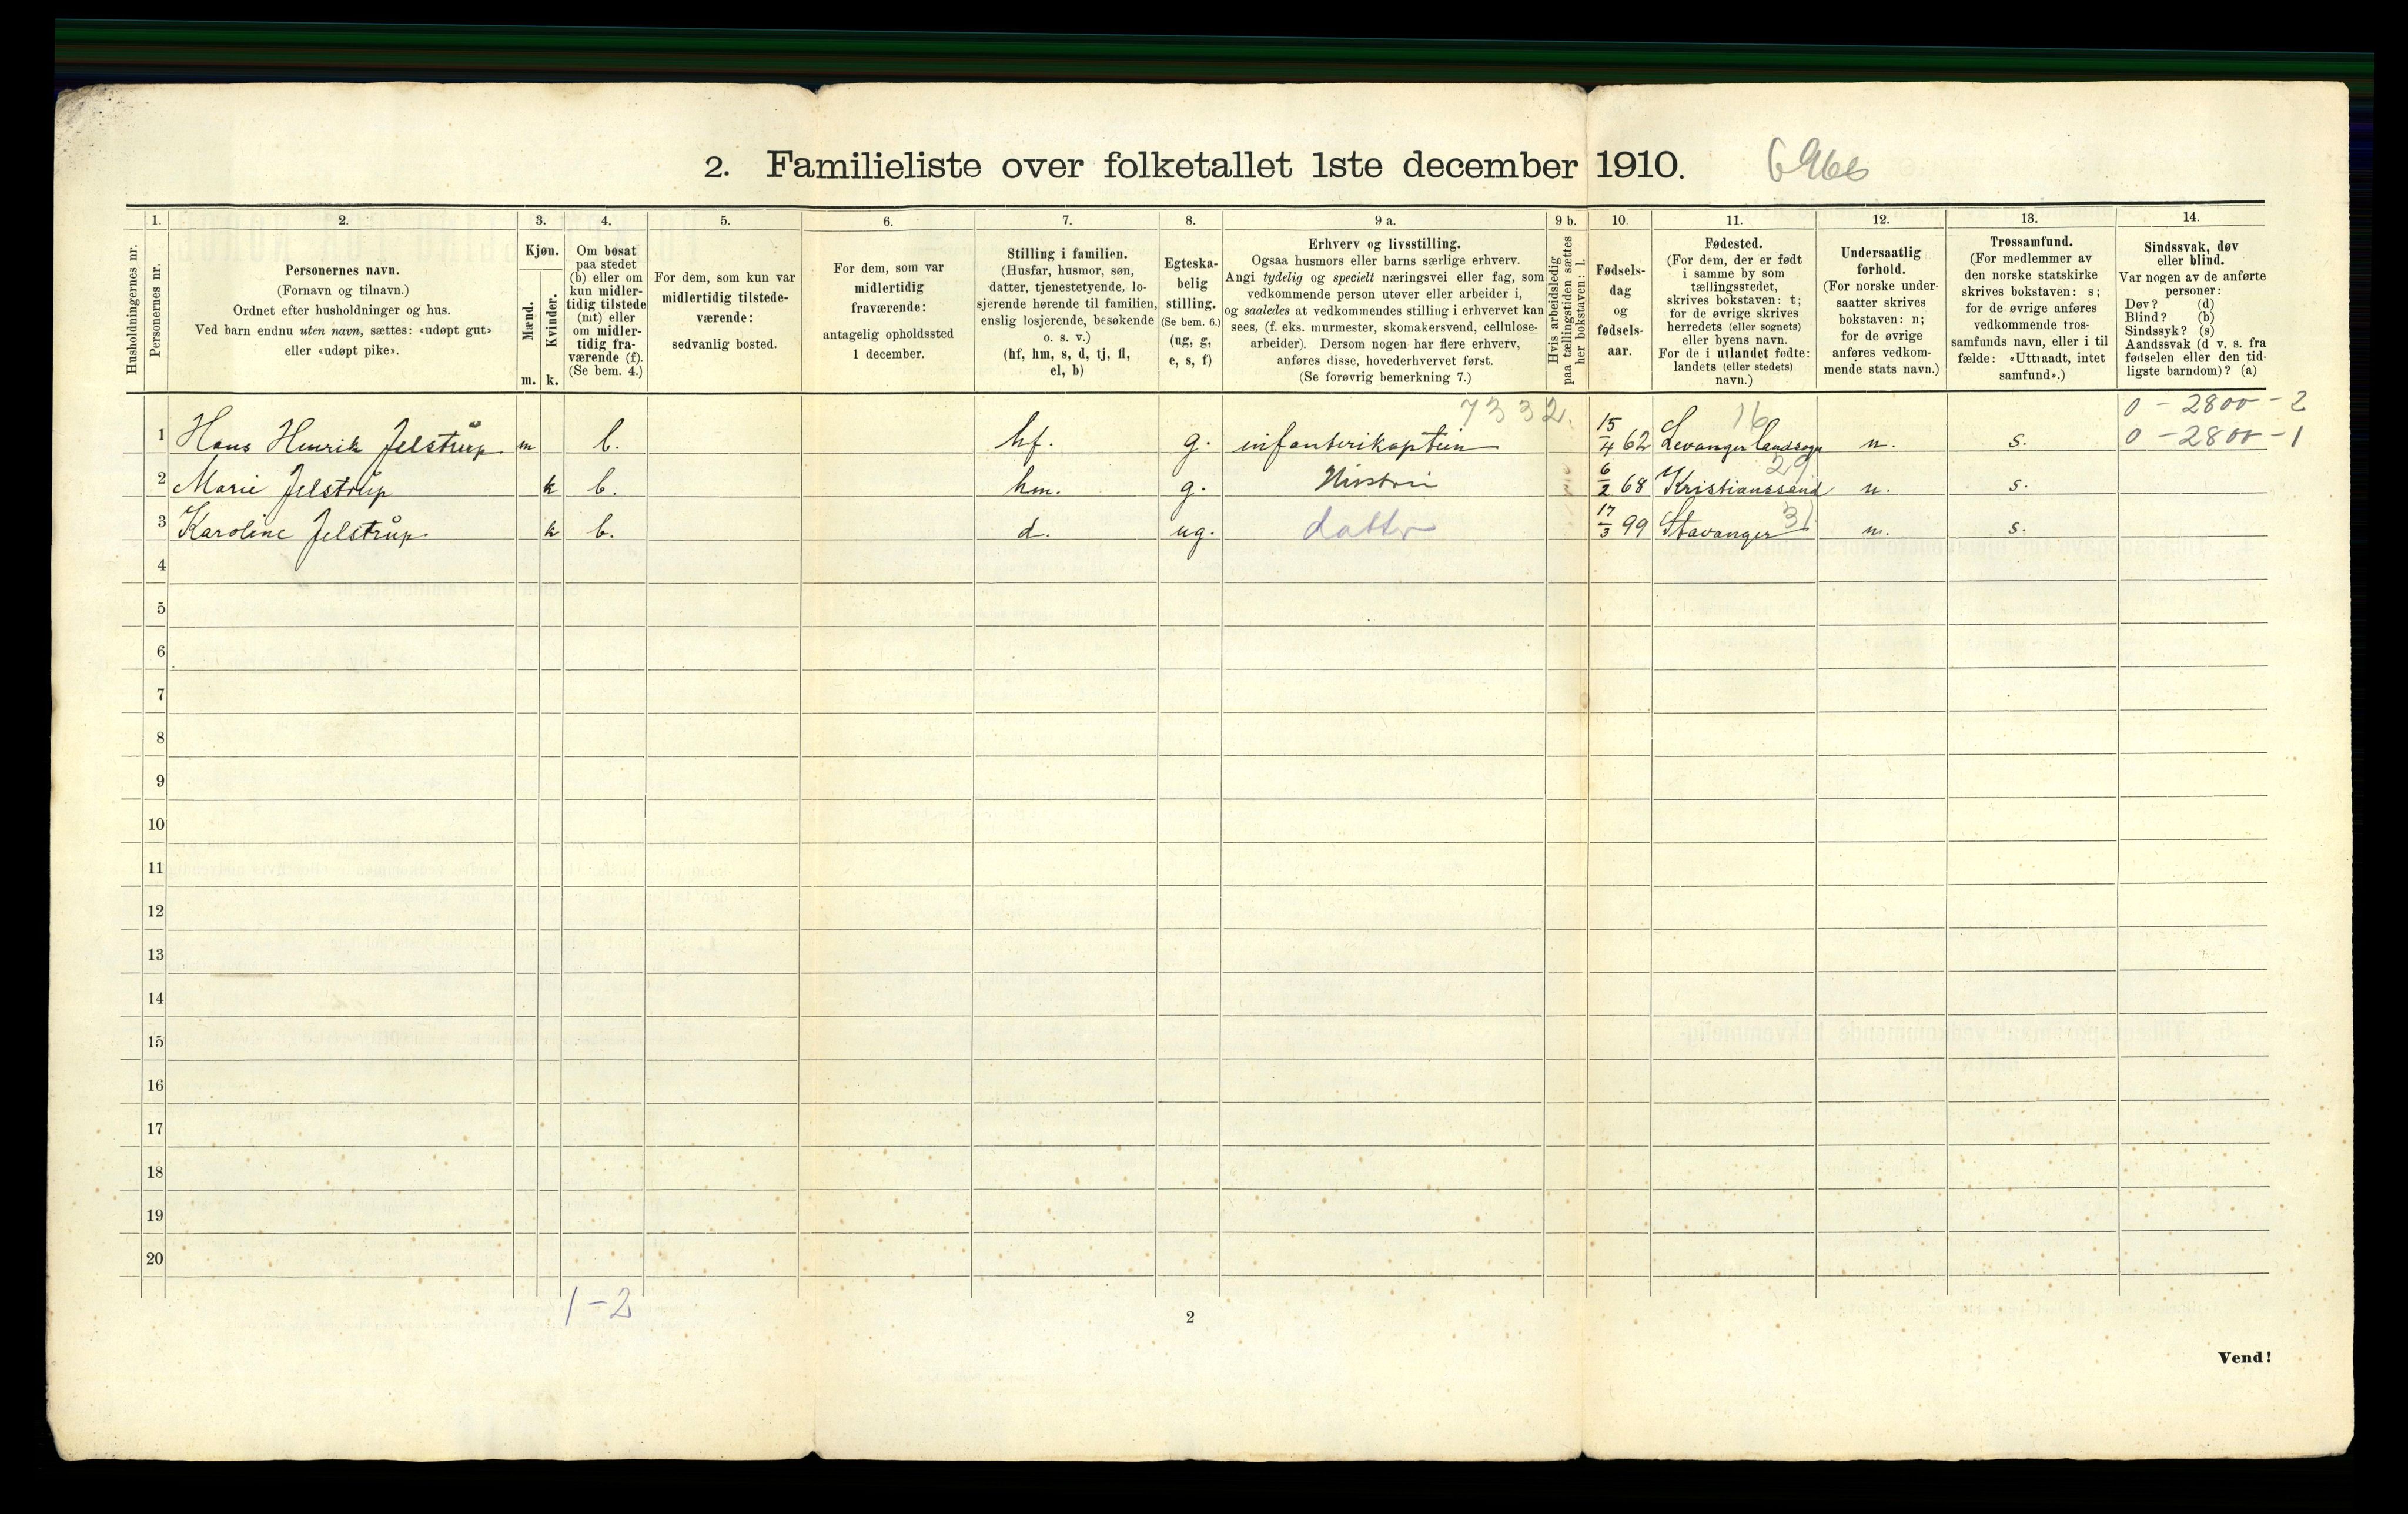 2. Familieliste over folketallet 1ste december 1910.
1. 2. 3. 4. 5. 6. 7. 8. 9 a. 9 b. 10. 11. 12. 13. 14.
Husholdningernes nr.
Personernes nr.
Personernes navn.
(Fornavn og tilnavn.)
Ordnet efter husholdninger og hus.
Ved barn endnu uten navn, sættes: «udøpt gut»
eller «udøpt pike».
Kjøn.
Mænd.
Kvinder.
m. k.
Om bosat
paa stedet
(b) eller om
kun midler-
tidig tilstede
(mt) eller
om midler-
tidig fra-
værende (f).
(Se bem. 4.)
For dem, som kun var
midlertidig tilstede-
værende:
sedvanlig bosted.
For dem, som var
midlertidig
fraværende:
antagelig opholdssted
1 december.
Stilling i familien.
(Husfar, husmor, søn,
datter, tjenestetyende, lo-
sjerende hørende til familien,
enslig losjerende, besøkende
o. s. v.)
(hf, hm, s, d, tj, fl,
el, b)
Egteska-
belig
stilling.
(Se bem. 6.)
(ug, g,
e, s, f)
Erhverv og livsstilling.
Ogsaa husmors eller barns særlige erhverv.
Angi tydelig og specielt næringsvei eller fag, som
vedkommende person utøver eller arbeider i,
og saaledes at vedkommendes stilling i erhvervet kan
sees, (f. eks. murmester, skomakersvend, cellulose-
arbeider). Dersom nogen har flere erhverv,
anføres disse, hovederhvervet først.
(Se forøvrig bemerkning 7.)
Hvis arbeidsledig
paa tællingstiden sættes
her bokstaven: l.
Fødsels-
dag
og
fødsels-
aar.
Fødested.
(For dem, der er født
i samme by som
tællingsstedet,
skrives bokstaven: t;
for de øvrige skrives
herredets (eller sognets)
eller byens navn.
For de i utlandet fødte:
landets (eller stedets)
navn.)
Undersaatlig
forhold.
(For norske under-
saatter skrives
bokstaven: n;
for de øvrige
anføres vedkom-
mende stats navn.)
Trossamfund.
(For medlemmer av
den norske statskirke
skrives bokstaven: s;
for de øvrige anføres
vedkommende tros-
samfunds navn, eller i til
fælde: «Uttraadt, intet
samfund».)
Sindssvak, døv
eller blind.
Var nogen av de anførte
personer:
Døv? (d)
Blind? (b)
Sindssyk? (s)
Aandssvak (d v. s. fra
fødselen eller den tid-
ligste barndom)? (a)
7332. 16 0 - 2800 - 2
1 Hans Henrik Jelstrup m b. hf. g. infanterikaptein 15/4 62 Levanger landsogn n. s. 0 - 2800 - 1
29
2 Marie Jelstrup k b. hm. g. 6/2 68 Kristianssand n. s.
3 Karoline Jelstrup k b. d. ug. datter 17/3 99 Stavanger 31 n. s.
4
5
6
7
8
9
10
11
12
13
14
15
16
17
18
19
20
1 - 2
2
Vend!